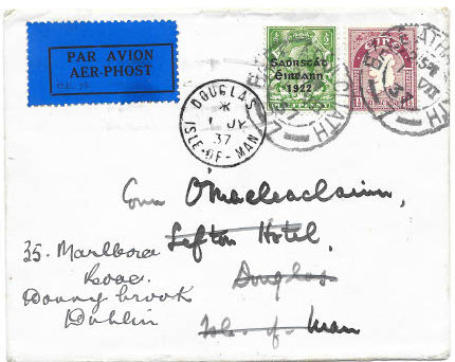 PAR AVION
AER-PHOST
SAORSTÁT
ÉIREANN
1922
DOUGLAS
1 JY
37
ISLE-OF-MAN
37
Omaclaclainn,
Sefton Hotel,
Douglas
Isle-of-Man
35. Marlboro
Road.
Donnybrook
Dublin